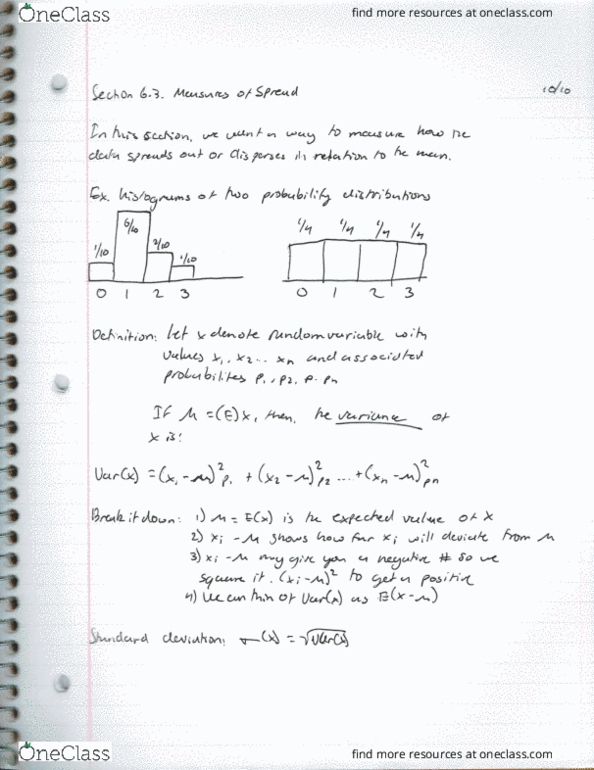 OneClass
find more resources at oneclass.com
Section 6.3. Measures of Spread
10/10
In this section, we want a way to measure how the
data spreads out or disperses in relation to the mean.
Ex. histograms of two probability distributions
1/10 6/10 2/10 1/10
1/4 1/4 1/4 1/4
0 1 2 3
0 1 2 3
Definition: Let x denote random variable with
values x1, x2... xn and associated
probabilites p1, p2, p. pn
If μ =(E)x, then, the variance of
x is:
Var(x) = (x1 -μ)²p1 + (x2 -μ)²p2 ... +(xn -μ)²pn
Break it down: 1) μ = E(x) is the expected value of X
2) xi -μ shows how far xi will deviate from μ
3) xi -μ may give you a negative # so we
square it. (xi -μ)² to get a positive
4) We can thin of Var(x) as E(x -μ)
Standard deviation: σ(x) = √Var(x)
OneClass
find more resources at oneclass.com